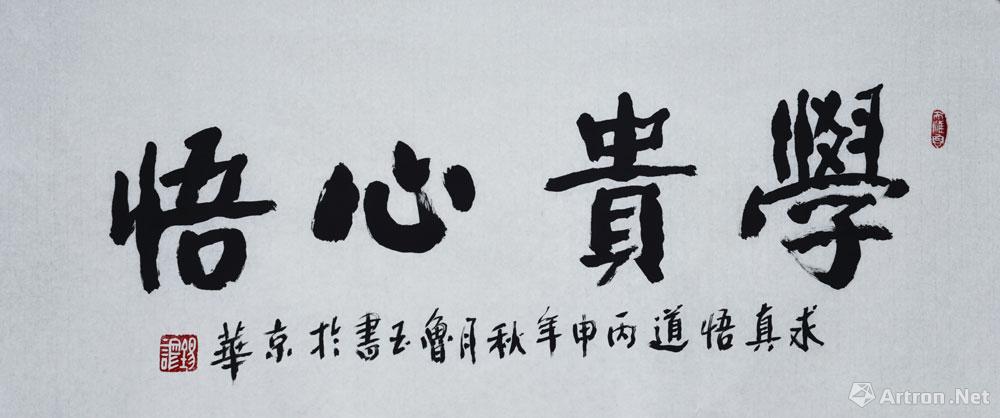 學貴心悟
求真悟道丙申年秋月魯玉書於京華
Artron.Net